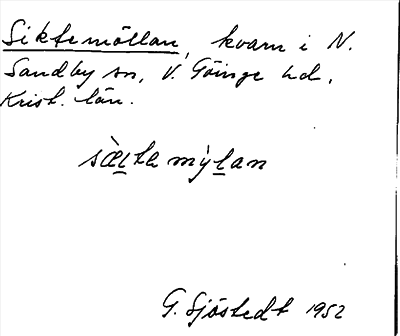 Siktemöllan, kvarn i N.
Sandby sn, V. Göinge hd,
Krist. län.
sæ̀lte mỳlan
G. Sjöstedt 1952